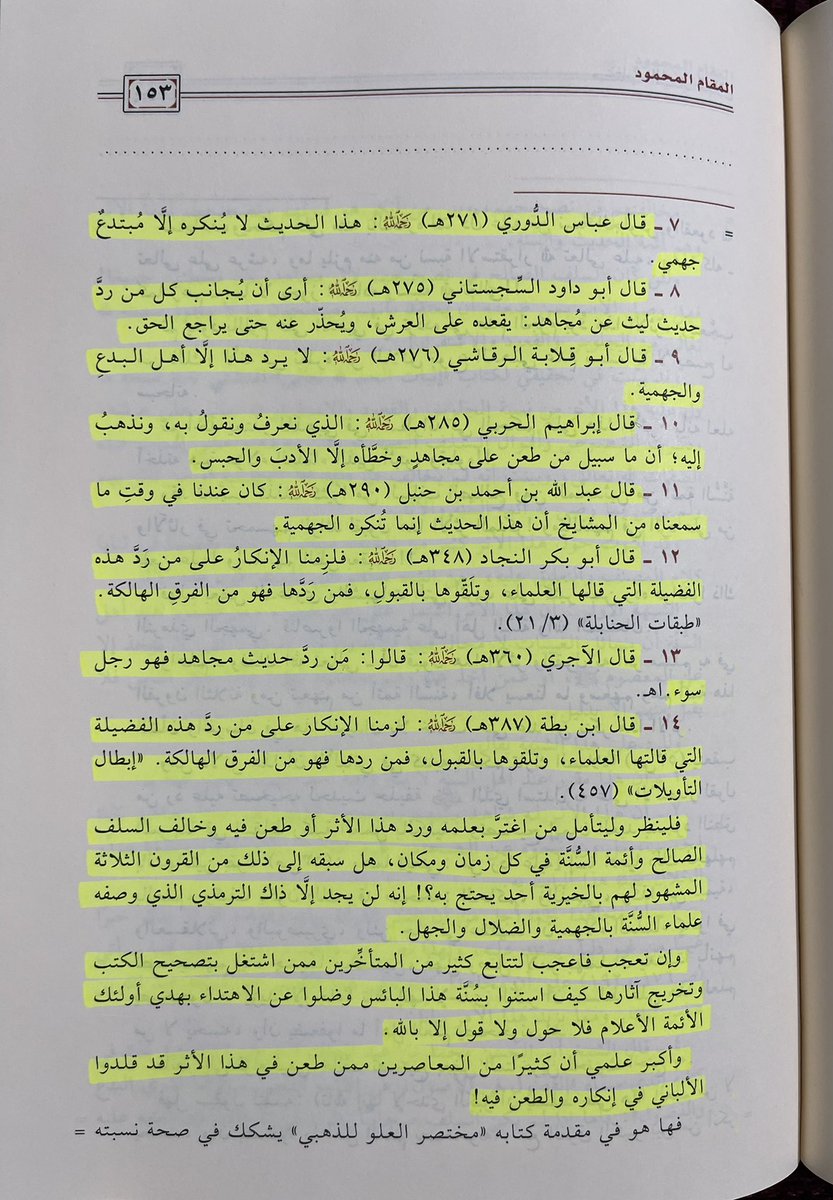 المقام المحمود
١٥٣
= ٧ ـ قال عباس الدُّوري (٢٧١هـ) رَحِمَهُ اللهُ: هذا الحديث لا يُنكره إلَّا مُبتدعٌ
جهمي.
٨ ـ قال أبو داود السِّجستاني (٢٧٥هـ) رَحِمَهُ اللهُ: أرى أن يُجانب كل من ردَّ
حديث ليث عن مُجاهد: يقعده على العرش، ويُحذّر عنه حتى يراجع الحق.
٩ ـ قال أبو قِلابة الرقاشي (٢٧٦هـ) رَحِمَهُ اللهُ: لا يرد هذا إلَّا أهل البدعِ
والجهمية.
١٠ ـ قال إبراهيم الحربي (٢٨٥هـ) رَحِمَهُ اللهُ: الذي نعرفُ ونقولُ به، ونذهبُ
إليه؛ أن ما سبيل من طعن على مجاهدٍ وخطَّأه إلَّا الأدبَ والحبس.
١١ ـ قال عبد الله بن أحمد بن حنبل (٢٩٠هـ) رَحِمَهُ اللهُ: كان عندنا في وقتِ ما
سمعناه من المشايخ أن هذا الحديث إنما تُنكره الجهمية.
١٢ ـ قال أبو بكر النجاد (٣٤٨هـ) رَحِمَهُ اللهُ: فلزمنا الإنكارُ على من رَدَّ هذه
الفضيلة التي قالها العلماء، وتلَقّوها بالقبولِ، فمن رَدَّها فهو من الفرقِ الهالكة.
«طبقات الحنابلة» (٣/ ٢١).
١٣ ـ قال الآجري (٣٦٠هـ) رَحِمَهُ اللهُ: قالوا: مَن ردَّ حديث مجاهد فهو رجل
سوء.اهـ.
١٤ ـ قال ابن بطة (٣٨٧هـ) رَحِمَهُ اللهُ: لزمنا الإنكار على من ردَّ هذه الفضيلة
التي قالتها العلماء، وتلقوها بالقبول، فمن ردها فهو من الفرق الهالكة. «إبطال
التأويلات» (٤٥٧).
فلينظر وليتأمل من اغترَّ بعلمه ورد هذا الأثر أو طعن فيه وخالف السلف
الصالح وأئمة السُّنَّة في كل زمان ومكان، هل سبقه إلى ذلك من القرون الثلاثة
المشهود لهم بالخيرية أحد يحتج به؟! إنه لن يجد إلَّا ذاك الترمذي الذي وصفه
علماء السُّنَّة بالجهمية والضلال والجهل.
وإن تعجب فاعجب لتتابع كثير من المتأخِّرين ممن اشتغل بتصحيح الكتب
وتخريج آثارها كيف استنوا بسُنَّة هذا البائس وضلوا عن الاهتداء بهدي أولئك
الأئمة الأعلام فلا حول ولا قول إلا بالله.
وأكبر علمي أن كثيرًا من المعاصرين ممن طعن في هذا الأثر قد قلدوا
الألباني في إنكاره والطعن فيه!
فها هو في مقدمة كتابه «مختصر العلو للذهبي» يشكك في صحة نسبته =